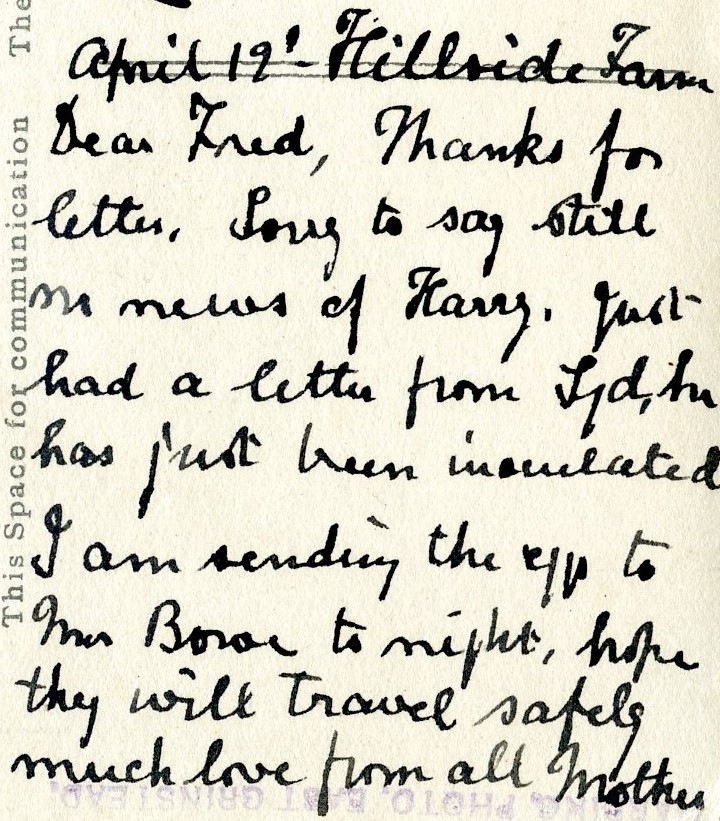 April 19th Hillside Farm
Dear Fred, Thanks for
letter. Sorry to say still
no news of Harry. Just
had a letter from Syd, he
has just been inoculated
I am sending the eggs to
Mrs Bowe to night, hope
they will travel safely
much love from all Mother
This Space for communication The
PHOTO. EAST GRINSTEAD.